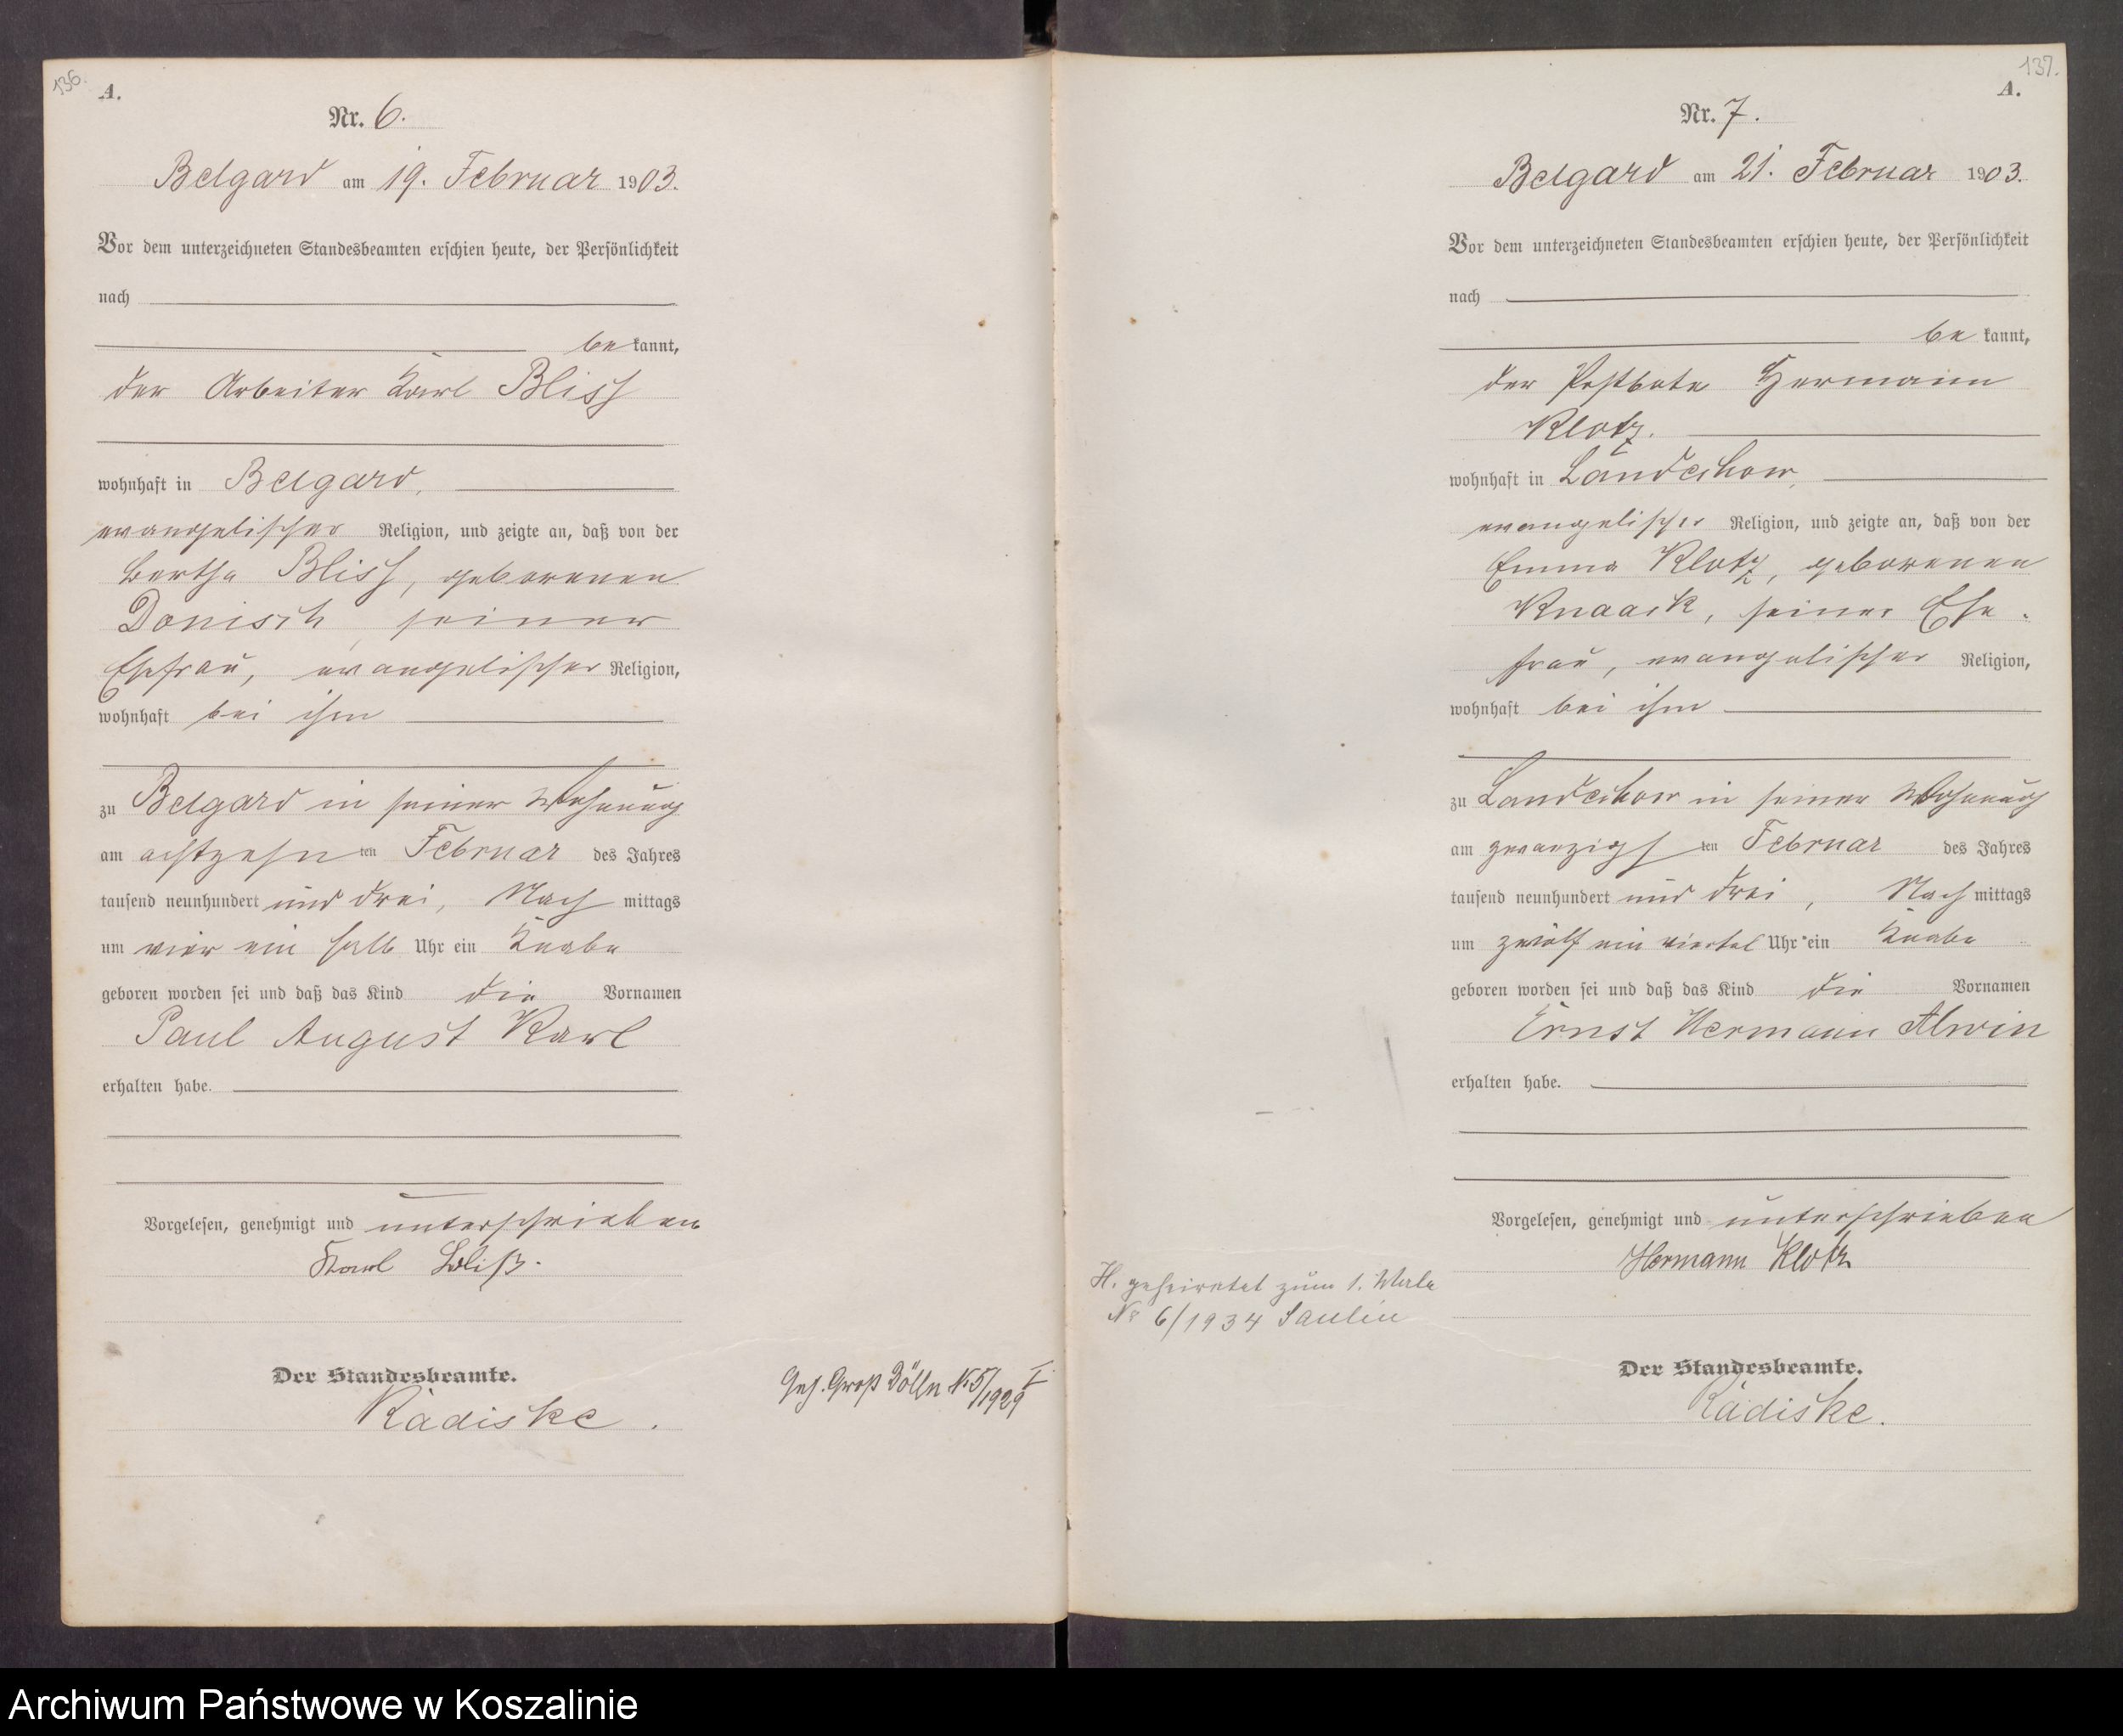 136.
A.
Nr. 6.
Belgard am 19. Februar 1903.
Vor dem unterzeichneten Standesbeamten erschien heute, der Persönlichkeit
nach
be kannt,
der Arbeiter Karl Bliss
wohnhaft in Belgard,
evangelischer Religion, und zeigte an, daß von der
Bertha Bliss, geborenen
Donisch, seiner
Ehefrau, evangelischer Religion,
wohnhaft bei ihm
zu Belgard in seiner Wohnung
am achtzehn ten Februar des Jahres
tausend neunhundert und drei, Nach mittags
um vier ein halb Uhr ein Knabe
geboren worden sei und daß das Kind die Vornamen
Paul August Karl
erhalten habe.
Vorgelesen, genehmigt und unterschrieben
Karl Bliß.
Der Standesbeamte.
Radiske.
Geh. Groß Dölln No 5/1929 I.
137.
A.
Nr. 7.
Belgard am 21. Februar 1903.
Vor dem unterzeichneten Standesbeamten erschien heute, der Persönlichkeit
nach
be kannt,
der Postbote Hermann
Klotz.
wohnhaft in Landechow,
evangelischer Religion, und zeigte an, daß von der
Emma Klotz, geborenen
Knaack, seiner Ehe-
frau, evangelischer Religion,
wohnhaft bei ihm
zu Landechow in seiner Wohnung
am zwanzigs ten Februar des Jahres
tausend neunhundert und drei, Nach mittags
um zwölf ein viertel Uhr ein Knabe
geboren worden sei und daß das Kind die Vornamen
Ernst Hermann Alwin
erhalten habe.
Vorgelesen, genehmigt und unterschrieben
Hermann Klotz
H. geheiratet zum 1. Male
No 6/1934 Saulin
Der Standesbeamte.
Radiske.
Archiwum Państwowe w Koszalinie